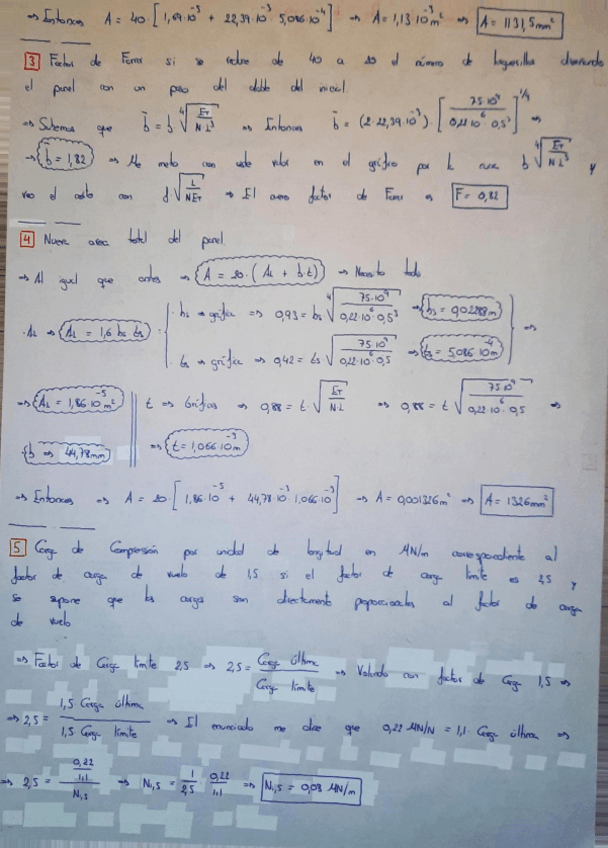 ⇒ Entonces A = 40 · [ 1,69·10⁻⁵ + 22,39·10⁻³ · 5,086·10⁻⁴ ] ⇒ A = 1,13·10⁻³ m² ⇒ A = 1131,5 mm²
3 Factor de Forma si se reduce de 40 a 20 el número de larguerillos diseñando
el panel con un paso del doble del inicial.
⇒ Sabemos que b̄ = b ⁴√(E_T / N·L³) ⇒ Entonces b̄ = (2·22,39·10⁻³) · [ 75·10⁹ / 0,22·10⁶·0,5³ ]^(1/4) ⇒
⇒ b̄ = 1,82 ⇒ Me meto con este valor en el gráfico por la nueva b ⁴√(E_T / N·L³) y
veo el corte con √(L / N E_T) ⇒ El nuevo factor de Forma es F = 0,82
4 Nueva area total del panel.
⇒ Al igual que antes ⇒ A = 20 · ( A_L + b·t ) ⇒ Necesito todo
· A_L ⇒ A_L = 1,6 h_s t_s
· h_s ⇒ gráfica ⇒ 0,93 = h_s ⁴√(75·10⁹ / 0,22·10⁶·0,5³) ⇒ h_s = 0,02288 m ⇒
· t_s ⇒ gráfica ⇒ 0,42 = t_s √(75·10⁹ / 0,22·10⁶·0,5) ⇒ t_s = 5,086·10⁻⁴ m
⇒ A_L = 1,86·10⁻⁵ m² t ⇒ Gráficas ⇒ 0,88 = t · √(E_T / N·L) ⇒ 0,88 = t √(75·10⁹ / 0,22·10⁶·0,5) ⇒
b ⇒ 44,78 mm ⇒ t = 1,066·10⁻³ m
⇒ Entonces ⇒ A = 20 · [ 1,86·10⁻⁵ + 44,78·10⁻³ · 1,066·10⁻³ ] ⇒ A = 0,001326 m² ⇒ A = 1326 mm²
5 Carga de Compresión por unidad de longitud en MN/m correspondiente al
factor de carga de vuelo de 1,5 si el factor de carga límite es 2,5 y
se supone que las cargas son directamente proporcionales al factor de carga
de vuelo
⇒ Factor de Carga límite 2,5 ⇒ 2,5 = Carga última / Carga límite ⇒ Volando con factor de Carga 1,5 ⇒
⇒ 2,5 = 1,5 Carga última / 1,5 Carga límite ⇒ El enunciado me dice que 0,22 MN/N = 1,1 · Carga última ⇒
⇒ 2,5 = (0,22 / 1,1) / N₁,₅ ⇒ N₁,₅ = 1/2,5 · 0,22/1,1 ⇒ N₁,₅ = 0,08 MN/m